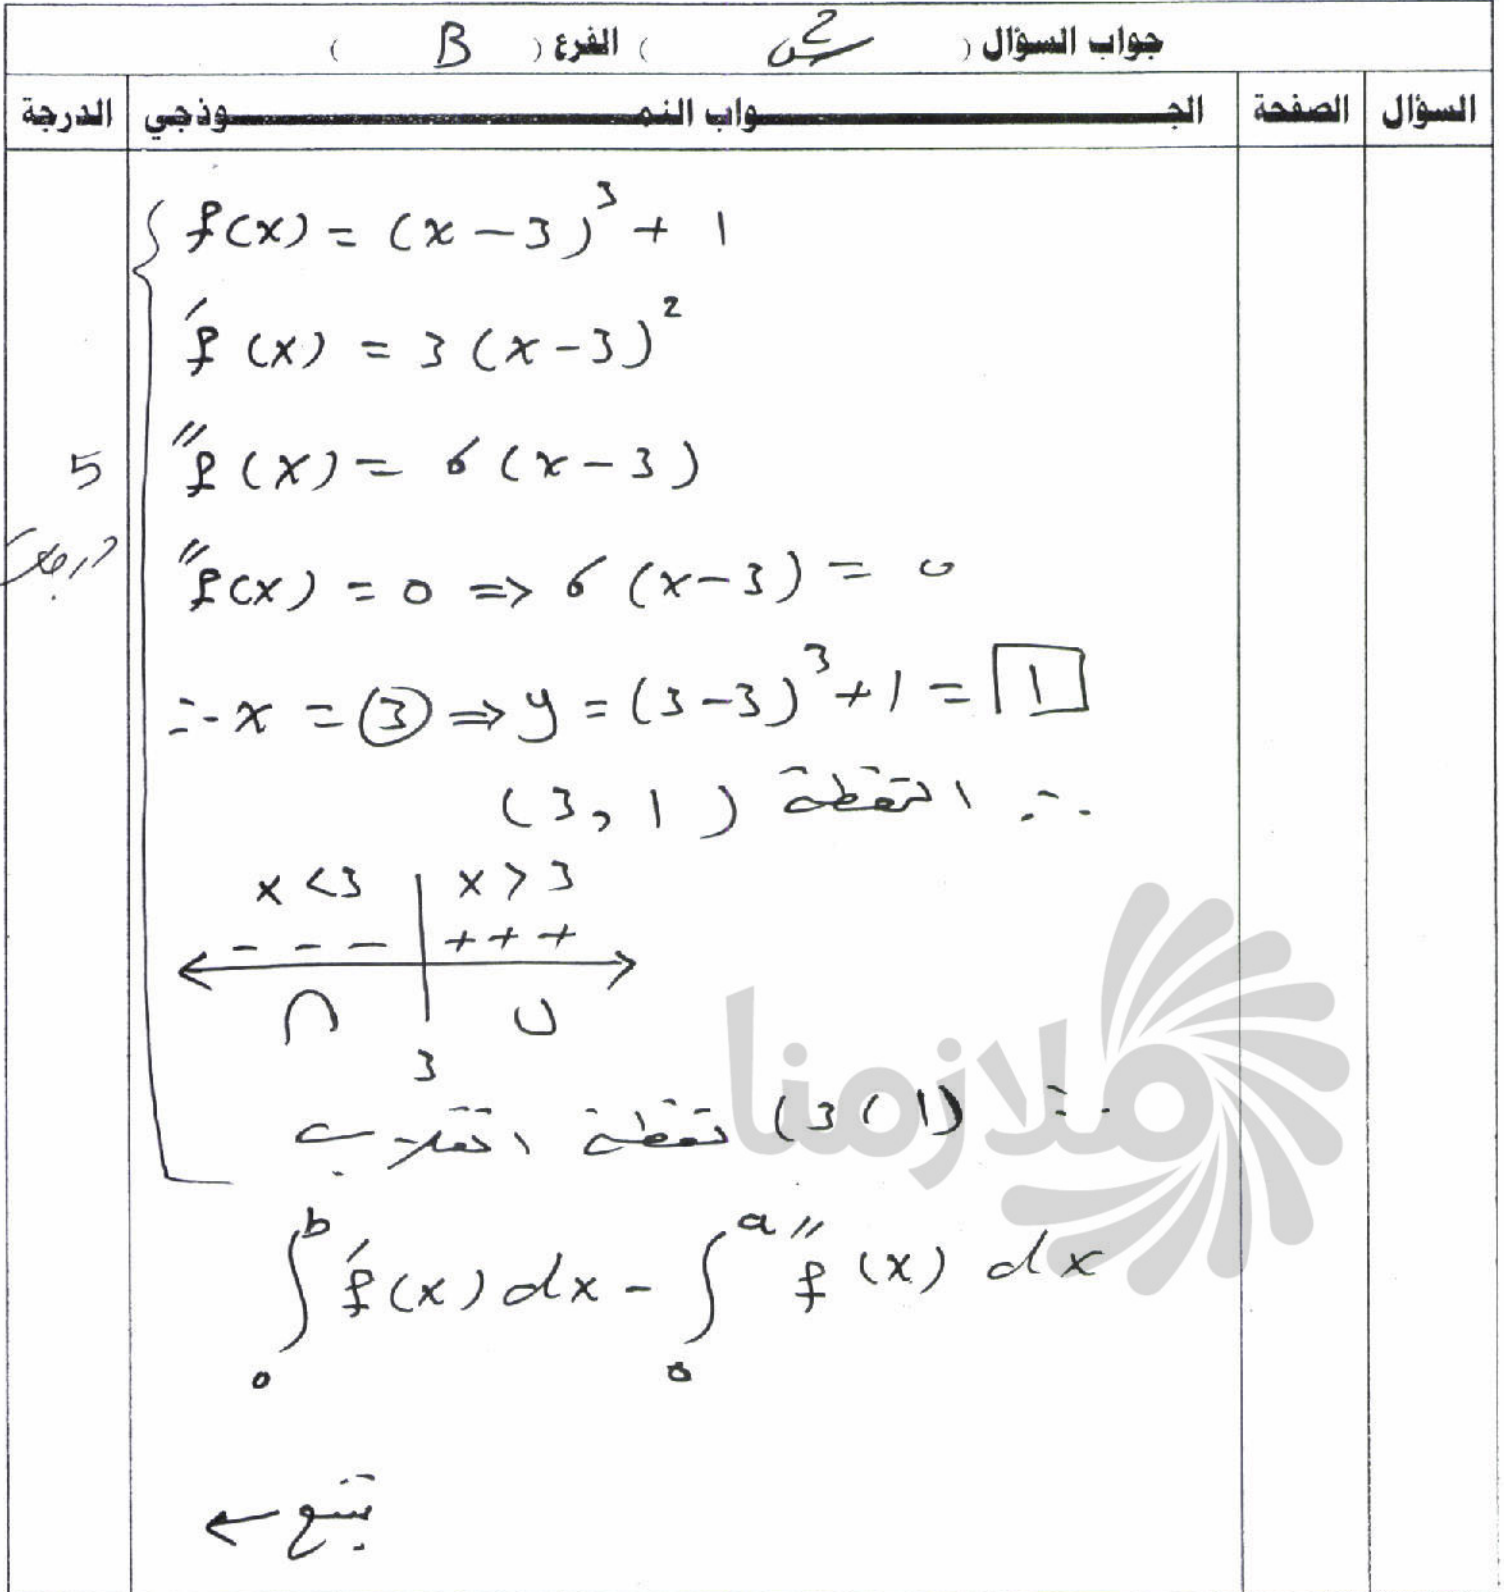 جواب السؤال ( س2 ) الفرع ( B )
السؤال الصفحة الجـــواب النمـــوذجي الدرجة
f(x) = (x - 3)³ + 1
f′(x) = 3(x-3)²
f″(x) = 6(x-3)
5
درجات
f″(x) = 0 ⇒ 6(x-3) = 0
∴ x = 3 ⇒ y = (3-3)³ + 1 = 1
∴ النقطة (3, 1)
x < 3 | x > 3
- - - | + + +
∩ ∪
3
∴ (3, 1) نقطة انقلاب
∫₀ᵇ f′(x) dx - ∫₀ᵃ f″(x) dx
يتبع ←
ملازمنا